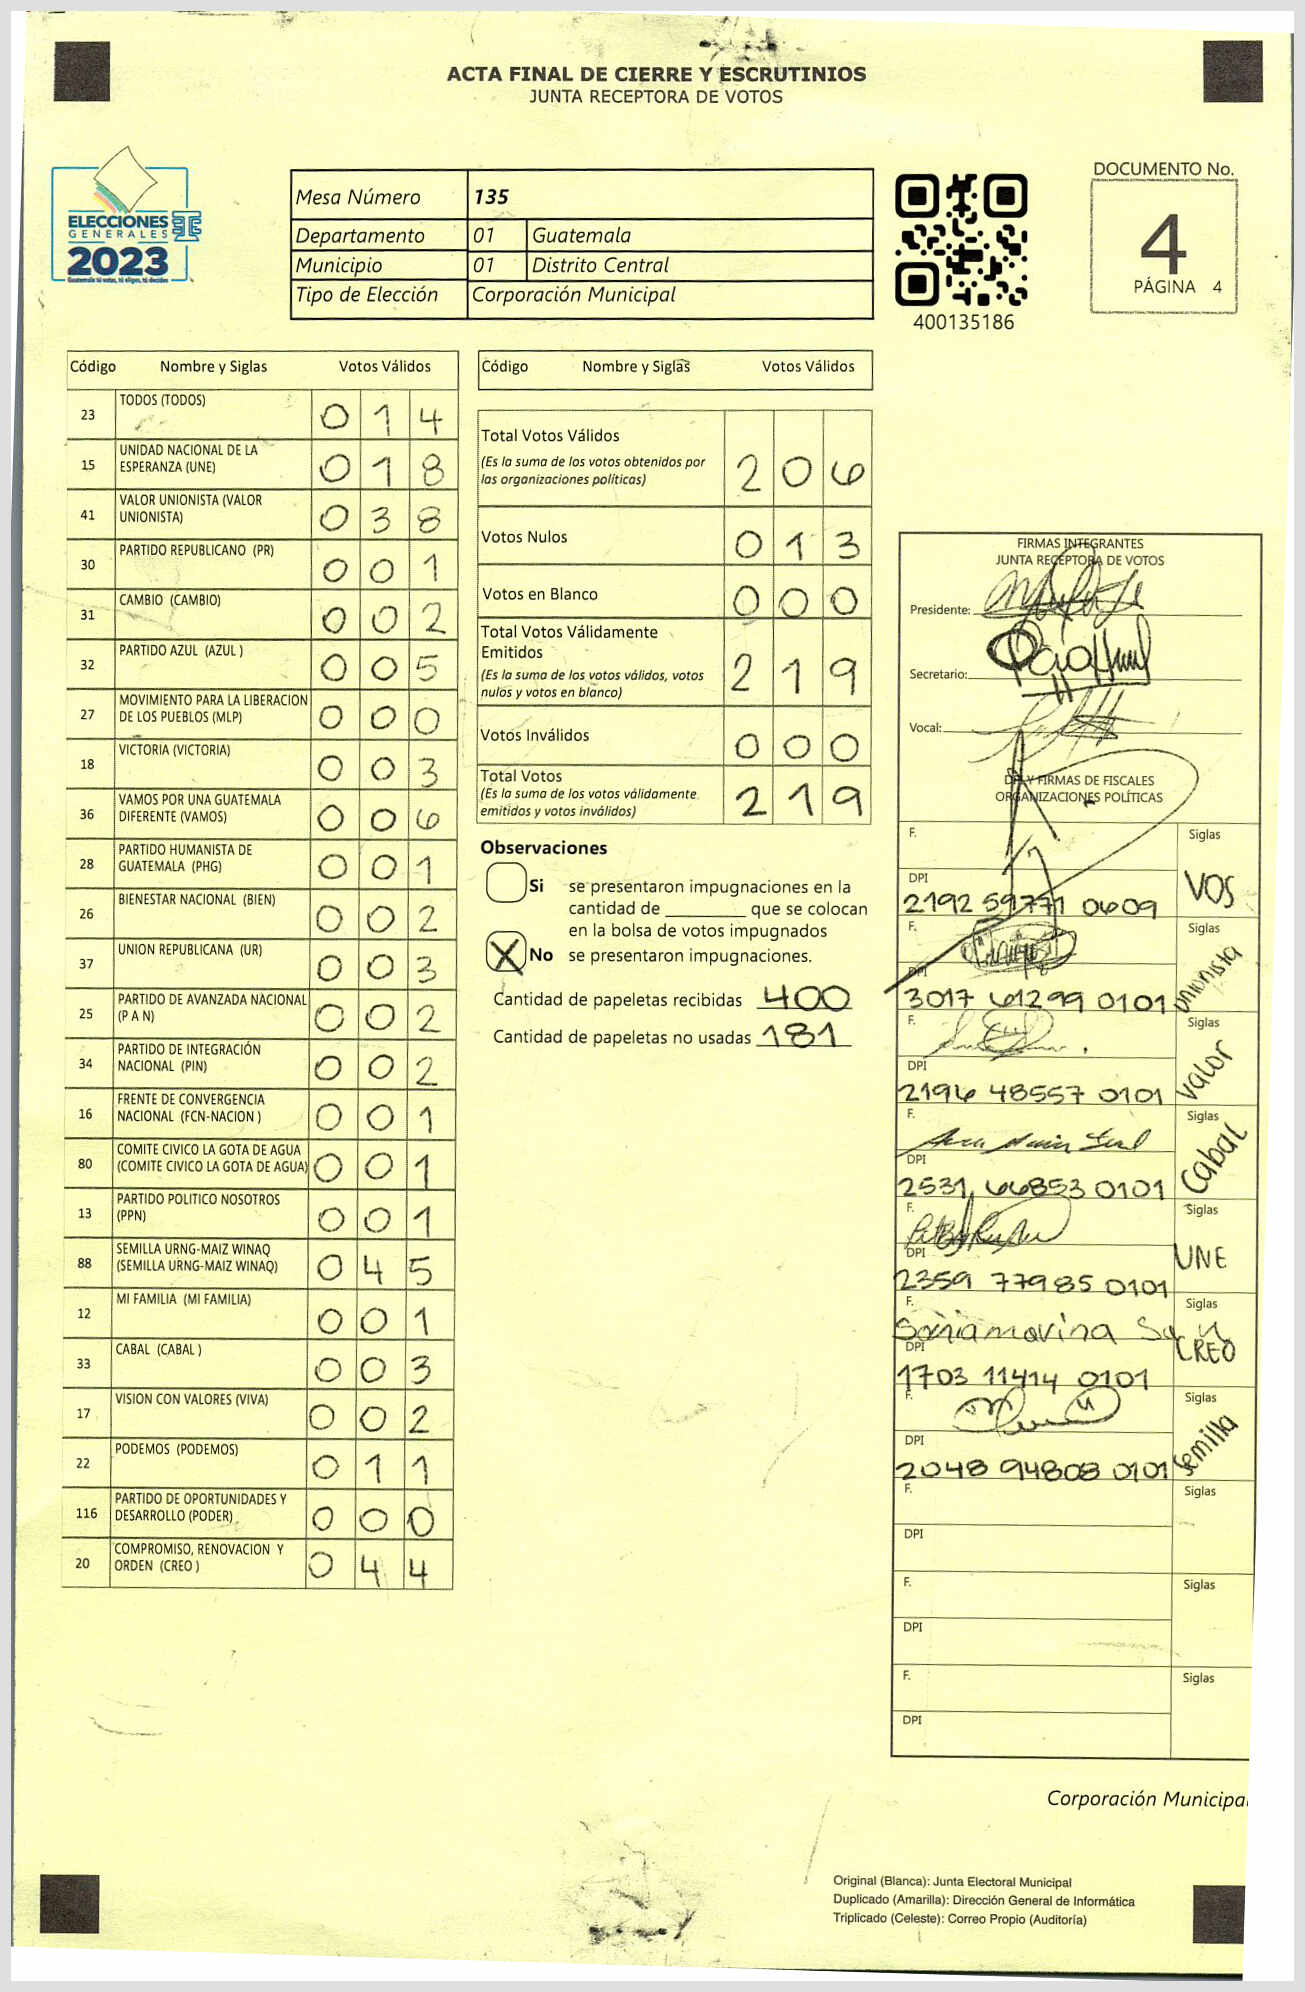 ACTA FINAL DE CIERRE Y ESCRUTINIOS
JUNTA RECEPTORA DE VOTOS
ELECCIONES
GENERALES
2023
Guatemala tú votas, tú eliges, tú decides
Mesa Número 135
Departamento 01 Guatemala
Municipio 01 Distrito Central
Tipo de Elección Corporación Municipal
400135186
DOCUMENTO No.
4
PÁGINA 4
Código Nombre y Siglas Votos Válidos
23 TODOS (TODOS) 0 1 4
15 UNIDAD NACIONAL DE LA ESPERANZA (UNE) 0 1 8
41 VALOR UNIONISTA (VALOR UNIONISTA) 0 3 8
30 PARTIDO REPUBLICANO (PR) 0 0 1
31 CAMBIO (CAMBIO) 0 0 2
32 PARTIDO AZUL (AZUL ) 0 0 5
27 MOVIMIENTO PARA LA LIBERACION DE LOS PUEBLOS (MLP) 0 0 0
18 VICTORIA (VICTORIA) 0 0 3
36 VAMOS POR UNA GUATEMALA DIFERENTE (VAMOS) 0 0 6
28 PARTIDO HUMANISTA DE GUATEMALA (PHG) 0 0 1
26 BIENESTAR NACIONAL (BIEN) 0 0 2
37 UNION REPUBLICANA (UR) 0 0 3
25 PARTIDO DE AVANZADA NACIONAL (P A N) 0 0 2
34 PARTIDO DE INTEGRACIÓN NACIONAL (PIN) 0 0 2
16 FRENTE DE CONVERGENCIA NACIONAL (FCN-NACION ) 0 0 1
80 COMITE CIVICO LA GOTA DE AGUA (COMITE CIVICO LA GOTA DE AGUA) 0 0 1
13 PARTIDO POLITICO NOSOTROS (PPN) 0 0 1
88 SEMILLA URNG-MAIZ WINAQ (SEMILLA URNG-MAIZ WINAQ) 0 4 5
12 MI FAMILIA (MI FAMILIA) 0 0 1
33 CABAL (CABAL ) 0 0 3
17 VISION CON VALORES (VIVA) 0 0 2
22 PODEMOS (PODEMOS) 0 1 1
116 PARTIDO DE OPORTUNIDADES Y DESARROLLO (PODER) 0 0 0
20 COMPROMISO, RENOVACION Y ORDEN (CREO ) 0 4 4
Código Nombre y Siglas Votos Válidos
Total Votos Válidos 2 0 6
(Es la suma de los votos obtenidos por
las organizaciones políticas)
Votos Nulos 0 1 3
Votos en Blanco 0 0 0
Total Votos Válidamente
Emitidos 2 1 9
(Es la suma de los votos válidos, votos
nulos y votos en blanco)
Votos Inválidos 0 0 0
Total Votos 2 1 9
(Es la suma de los votos válidamente
emitidos y votos inválidos)
Observaciones
Si se presentaron impugnaciones en la
cantidad de ________ que se colocan
en la bolsa de votos impugnados
X No se presentaron impugnaciones.
Cantidad de papeletas recibidas 400
Cantidad de papeletas no usadas 181
FIRMAS INTEGRANTES
JUNTA RECEPTORA DE VOTOS
Presidente:
Secretario:
Vocal:
DPI Y FIRMAS DE FISCALES
ORGANIZACIONES POLÍTICAS
F. Siglas
DPI VOS
2192 59771 0609
F. Siglas
DPI Unionista
3017 61299 0101
F. Siglas
DPI Valor
2196 48557 0101
F. Siglas
DPI Cabal
2531 66853 0101
F. Siglas
DPI UNE
2359 77985 0101
F. Siglas
DPI CREO
1703 11414 0101
F. Siglas
DPI Semilla
2048 94808 0101
F. Siglas
DPI
F. Siglas
DPI
F. Siglas
DPI
Corporación Municipal
Original (Blanca): Junta Electoral Municipal
Duplicado (Amarilla): Dirección General de Informática
Triplicado (Celeste): Correo Propio (Auditoría)